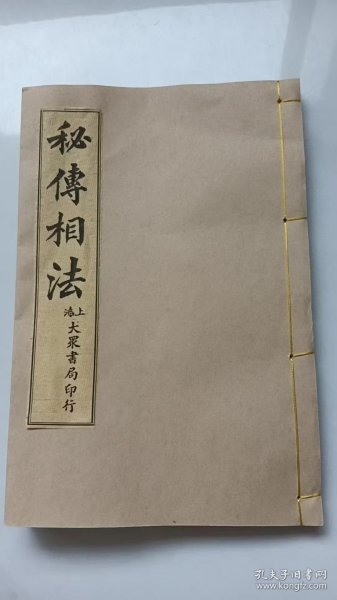 秘傳相法
上海大眾書局印行
孔夫子旧书网
www.kongfz.com